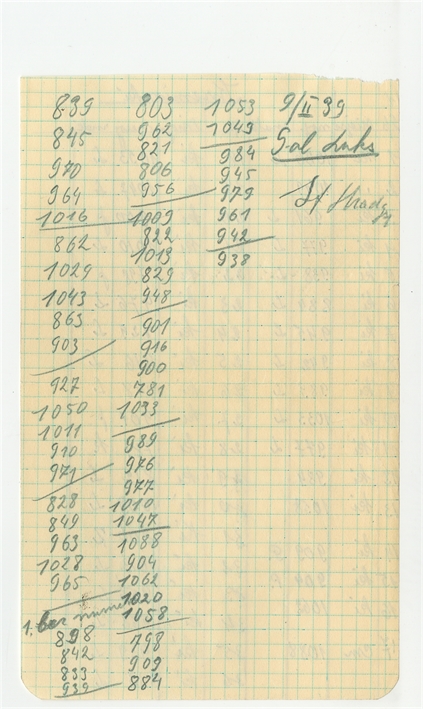 839
845
970
964
1016
862
1029
1043
863
903
927
1050
1011
910
971
828
849
963
1028
965
1. bez
898
842
833
939
803
962
821
806
956
1009
822
1013
829
948
901
916
900
781
1033
989
976
977
1010
1047
1088
904
1062
1020
1058
798
909
884
1053
1049
984
945
979
961
942
938
9/II 39